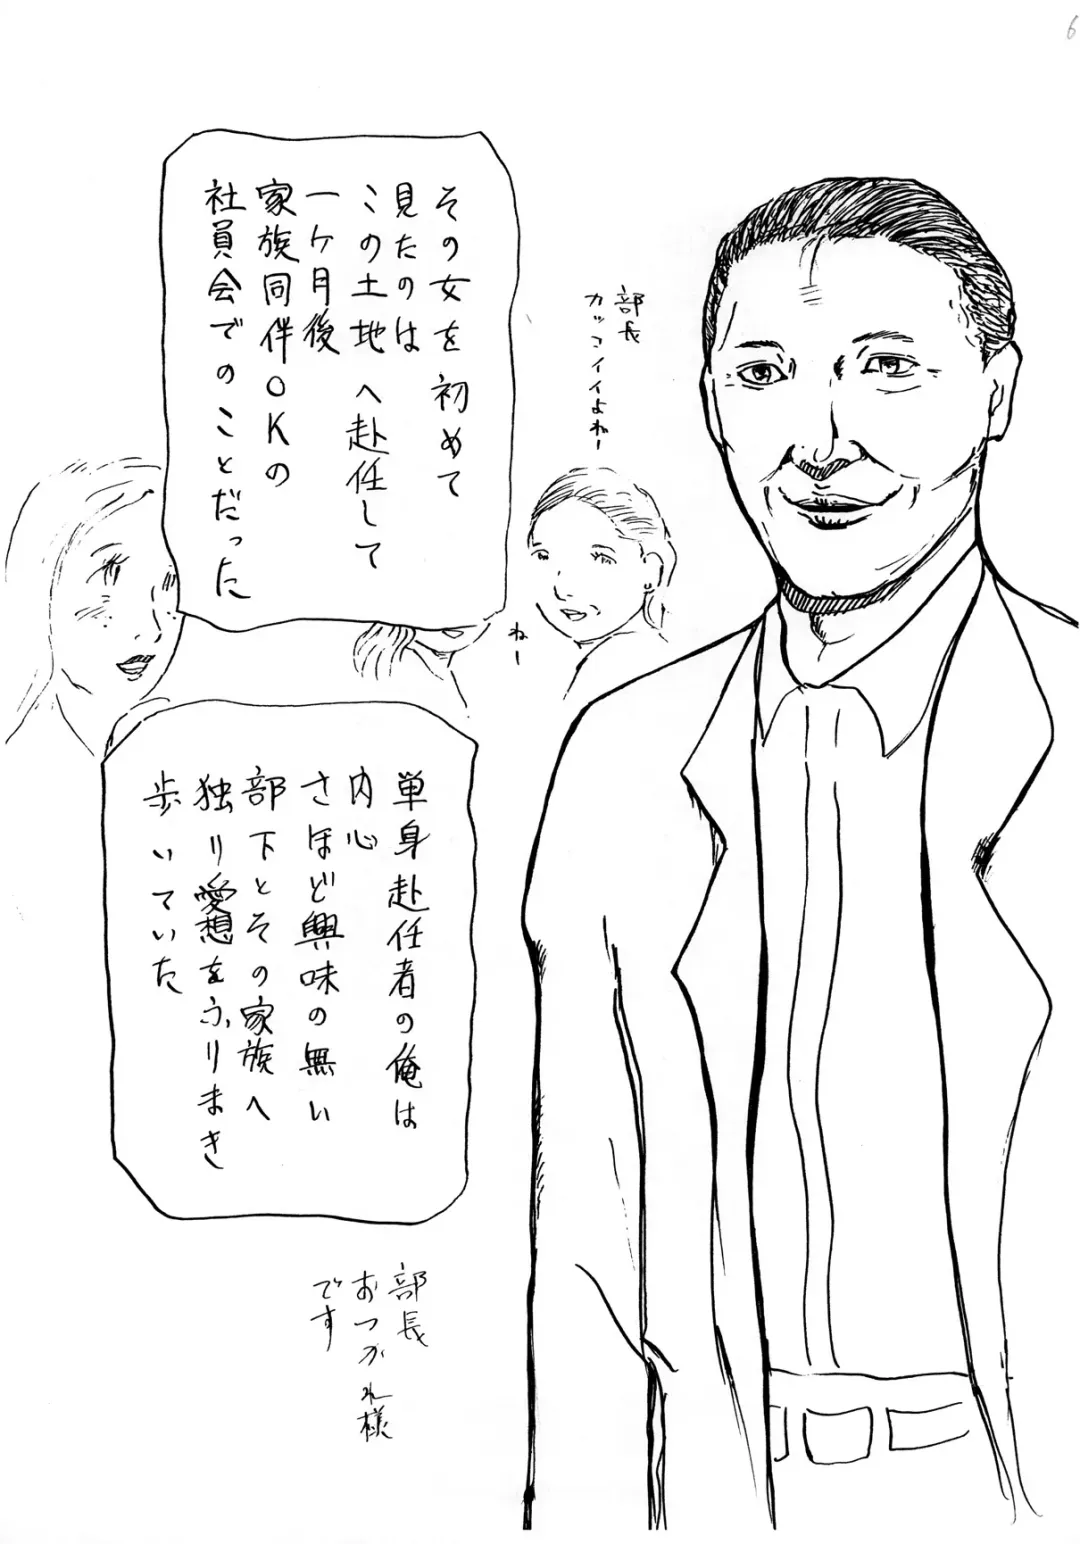 6
その女を初めて
見たのは
この土地へ赴任して
一ケ月後
家族同伴OKの
社員会でのことだった
部長
カッコイイよねー
ねー
単身赴任者の俺は
内心
さほど興味の無い
部下とその家族へ
独り愛想をふりまき
歩いていた
部長
おつかれ様
です